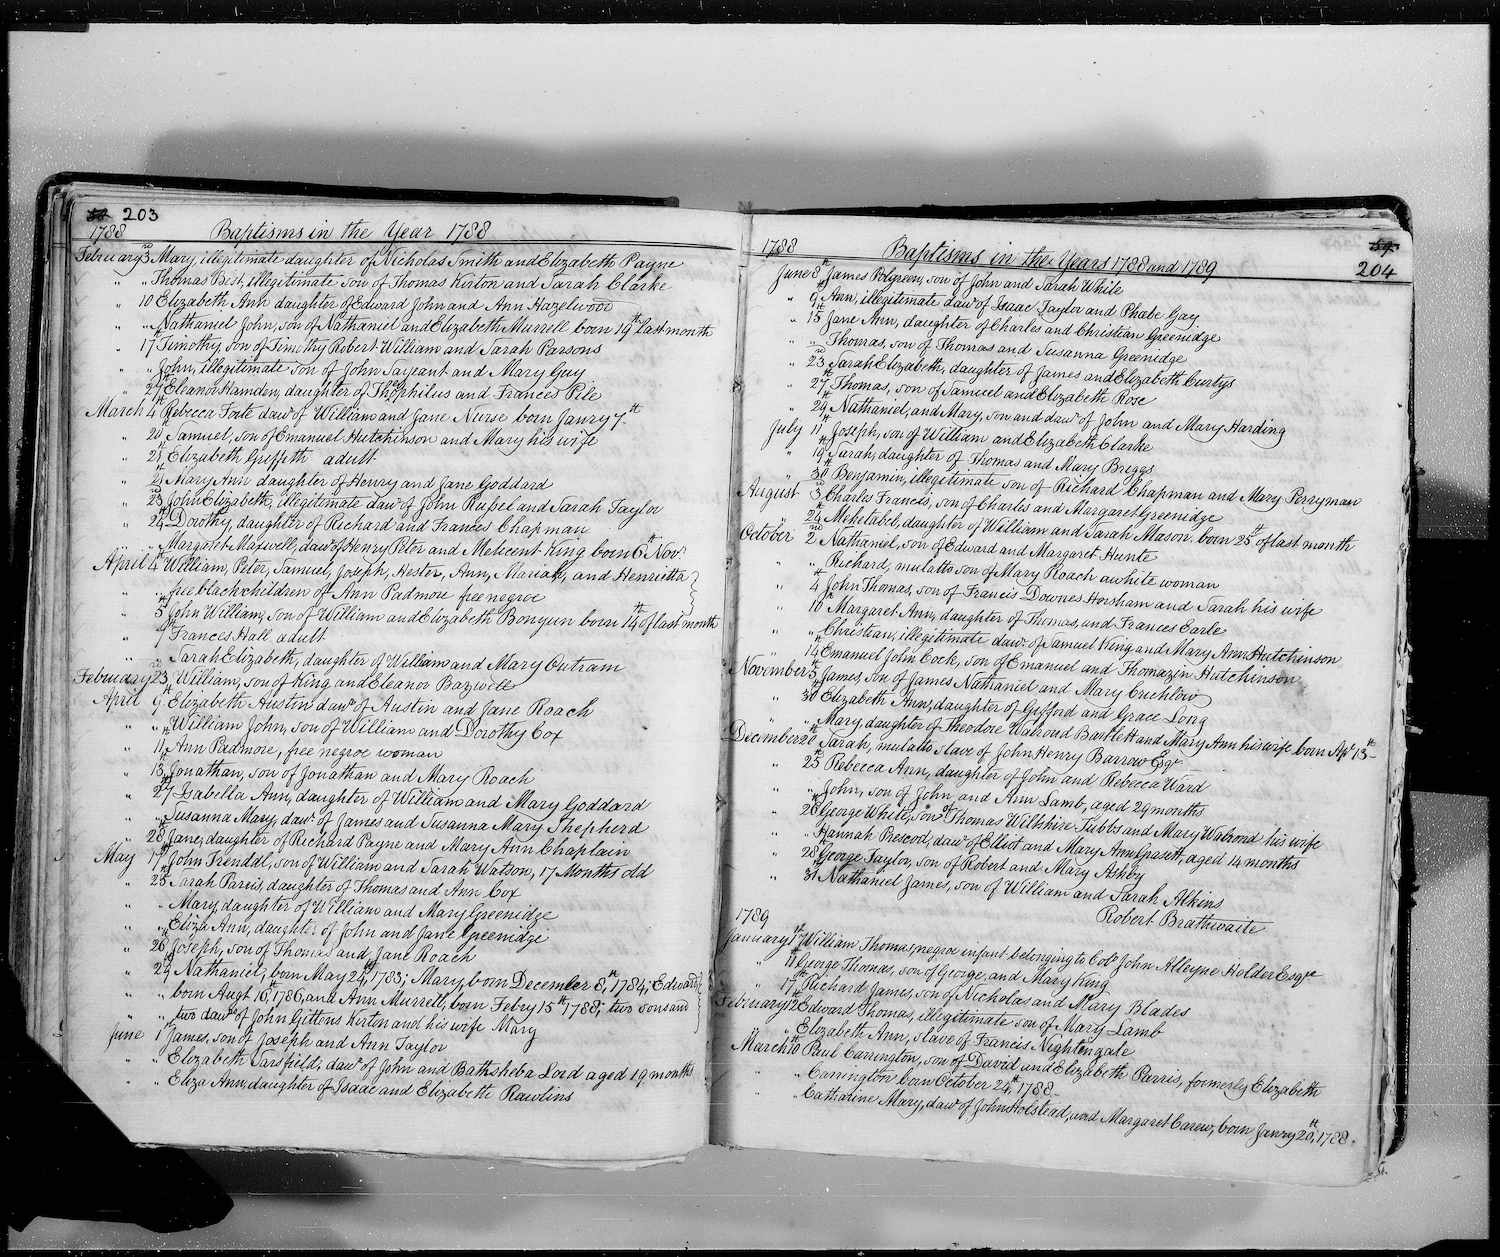 203
1788 Baptisms in the Year 1788
February 3rd Mary, illegitimate daughter of Nicholas Smith and Elizabeth Payne
" " Thomas Best, illegitimate son of Thomas Kirton and Sarah Clarke
" 10 Elizabeth Ann daughter of Edward John and Ann Hazelwood
" " Nathaniel John, son of Nathaniel and Elizabeth Murrell born 19th last month
" 17 Timothy, son of Timothy Robert William and Sarah Parsons
" " John, illegitimate son of John Sargeant and Mary Guy
" 27 Eleanor Hamden, daughter of Theophilus and Frances Pile
March 4th Rebecca Forte dawr of William and Jane Nurse born Janry 7th
" 20 Samuel, son of Emanuel Hutchinson and Mary his wife
" 21 Elizabeth Griffith adult
" " Mary Ann daughter of Henry and Jane Goddard
" 23rd John Elizabeth, illegitimate dawr of John Rupel and Sarah Taylor
" 24th Dorothy, daughter of Richard and Frances Chapman
" " Margaret Maxwell, dawr of Henry Peter and Melicent King born 6th Novr
April 4 William, Peter, Samuel, Joseph, Hester, Ann, Mariah, and Henrietta
" free black children of Ann Padmore free negroe
" 5th John William, son of William and Elizabeth Bonyun born 14th of last month
" Frances Hall adult
" " Sarah Elizabeth, daughter of William and Mary Outram
February 23rd William, son of King and Eleanor Bazwell
April 9th Elizabeth Austin dawr of Austin and Jane Roach
" " William John, son of William and Dorothy Cox
" 11th Ann Padmore, free negroe woman
" 13 Jonathan, son of Jonathan and Mary Roach
" 27th Isabella Ann, daughter of William and Mary Goddard
" " Susanna Mary, dawr of James and Susanna Mary Shepherd
" 28 Jane, daughter of Richard Payne and Mary Ann Chaplain
May 1st John Trenddl, son of William and Sarah Watson, 17 Months old
" 25 Sarah Parris, daughter of Thomas and Ann Cox
" " Mary, daughter of William and Mary Greenidge
" " Eliza Ann, daughter of John and Jane Greenidge
" 26th Joseph, son of Thomas and Jane Roach
" 29 Nathaniel, born May 24th, 1783; Mary, born December 8th, 1784; Edward
" " born Augt 16th, 1786, and Ann Murrell, born Febry 15th 1788; two sons and
" " two dawrs of John Gittens Kirton and his wife Mary
June 1st James, son of Joseph and Ann Taylor
" " Elizabeth Sarsfield, dawr of John and Bathsheba Lord aged 19 months
" " Eliza Ann, daughter of Isaac and Elizabeth Rawlins
204
1788 Baptisms in the Years 1788 and 1789
June 8th James Polgreen, son of John and Sarah White
" 9th Ann, illegitimate dawr of Isaac Taylor and Phabe Gay
" 15 Jane Ann, daughter of Charles and Christian Greenidge
" " Thomas, son of Thomas and Susanna Greenidge
" 23rd Sarah Elizabeth, daughter of James and Elizabeth Curtys
" 27 Thomas, son of Samuel and Elizabeth Rose
" 29 Nathaniel, and Mary, son and dawr of John and Mary Harding
July 11th Joseph, son of William and Elizabeth Clarke
" 19 Sarah, daughter of Thomas and Mary Briggs
" Benjamin, illegitimate son of Richard Chapman and Mary Perryman
August 3rd Charles Francis, son of Charles and Margaret Greenidge
" 24 Mehetabel, daughter of William and Sarah Mason born 25th of last month
October 2nd Nathaniel, son of Edward and Margaret Hunte
" " Richard, mulatto son of Mary Roach a white woman
" 4th John Thomas, son of Francis Downes Horsham and Sarah his wife
" 10 Margaret Ann, daughter of Thomas, and Frances Earle
" " Christian, illegitimate dawr of Samuel King and Mary Ann Hutchinson
" 14 Emanuel John Cock, son of Emanuel and Thomazin Hutchinson
November 3 James, son of James Nathaniel and Mary Cuchlow
" 30 Elizabeth Ann, daughter of Gifford and Grace Long
" " Mary daughter of Theodore Walroud Bartlett and Mary Ann his wife born Apl 13th
December Sarah, mulatto slave of John Henry Barrow Esqr
" 25 Rebecca Ann, daughter of John and Rebecca Ward
" " John, son of John, and Ann Lamb, aged 29 months
" 26 George White, son of Thomas Wiltshire Tubbs and Mary Walrond his wife
" " Hannah Prescod, dawr of Elliot and Mary Ann Grasett, aged 14 months
" 28 George Taylor, son of Robert and Mary Ashby
" 31 Nathaniel James, son of William and Sarah Alkins
Robert Brathwaite
1789
January 1st William Thomas, negroe infant belonging to Colo John Alleyne Holder Esqre
" 11th George Thomas, son of George, and Mary King
" 17 Richard James, son of Nicholas and Mary Blades
February 12th Edward Thomas, illegitimate son of Mary Lamb
" " Elizabeth Ann, slave of Francis Nightengale
March 10th Paul Carrington, son of David and Elizabeth Parris, formerly Elizabeth
" " Carrington born October 24th, 1788
" " Catharine Mary, dawr of John Holstead, and Margaret Carew, born Janry 20th, 1788.